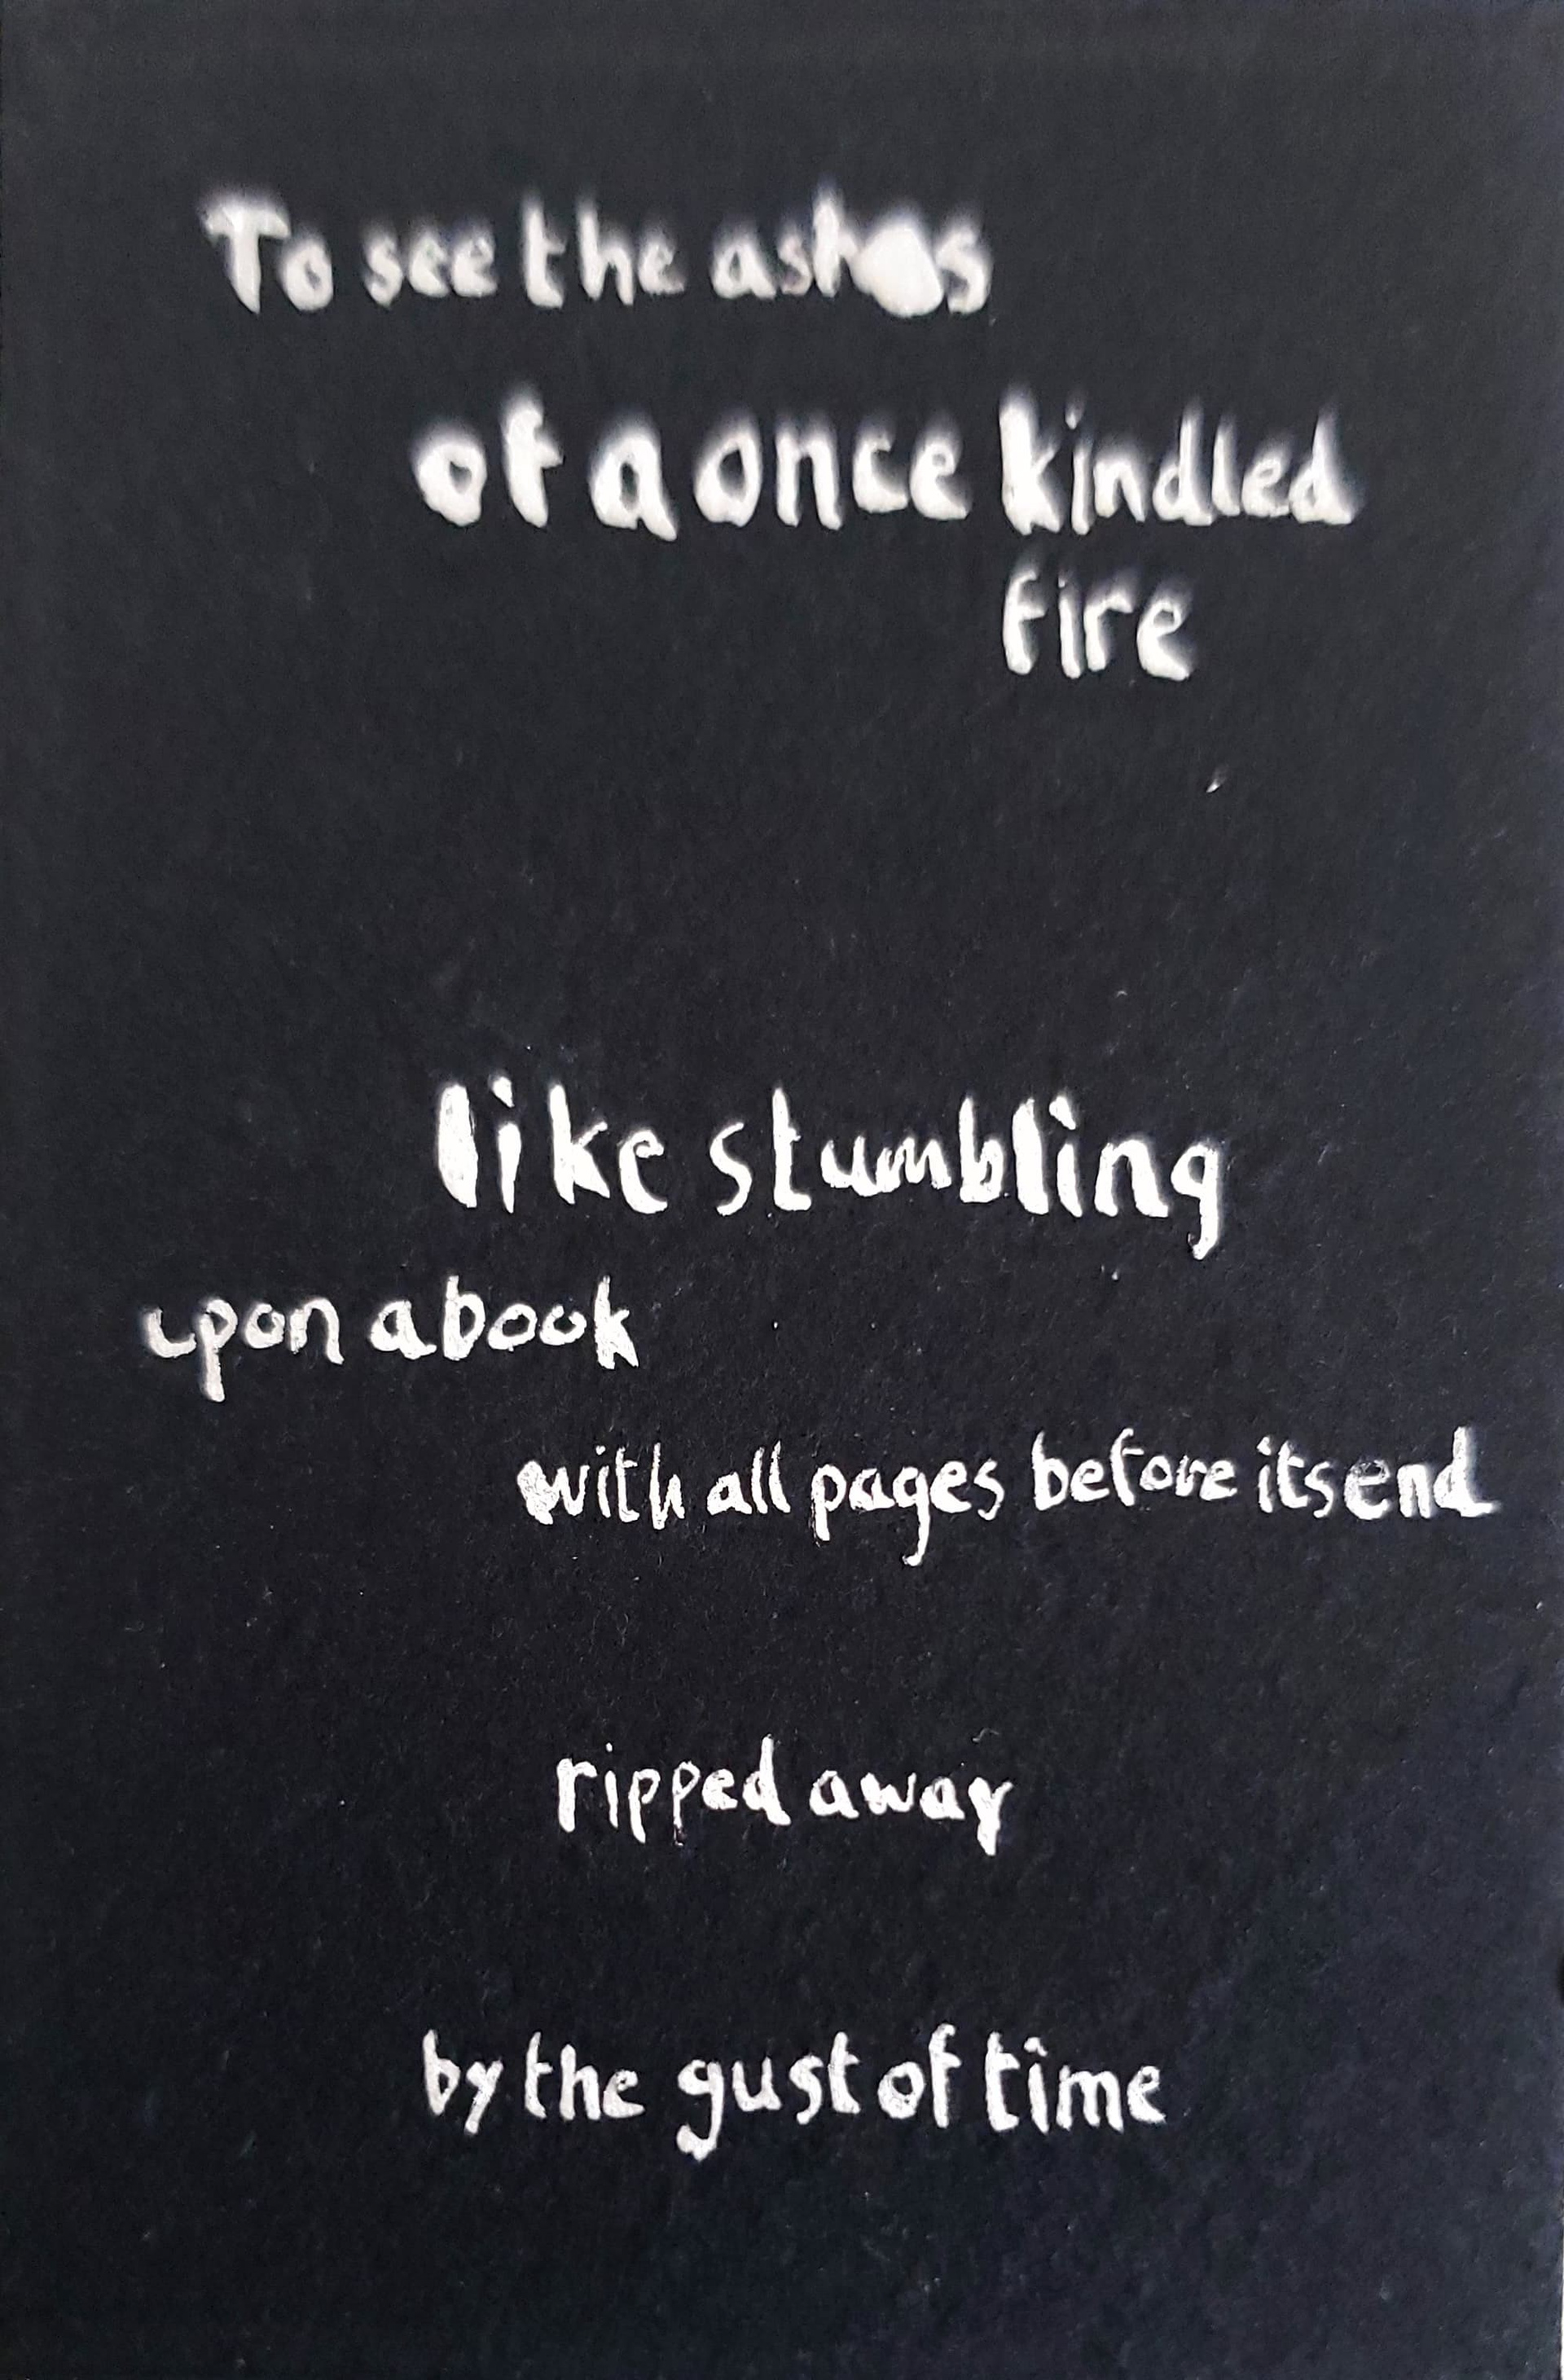 To see the ashes
of a once kindled
fire
like stumbling
upon a book
with all pages before its end
ripped away
by the gust of time